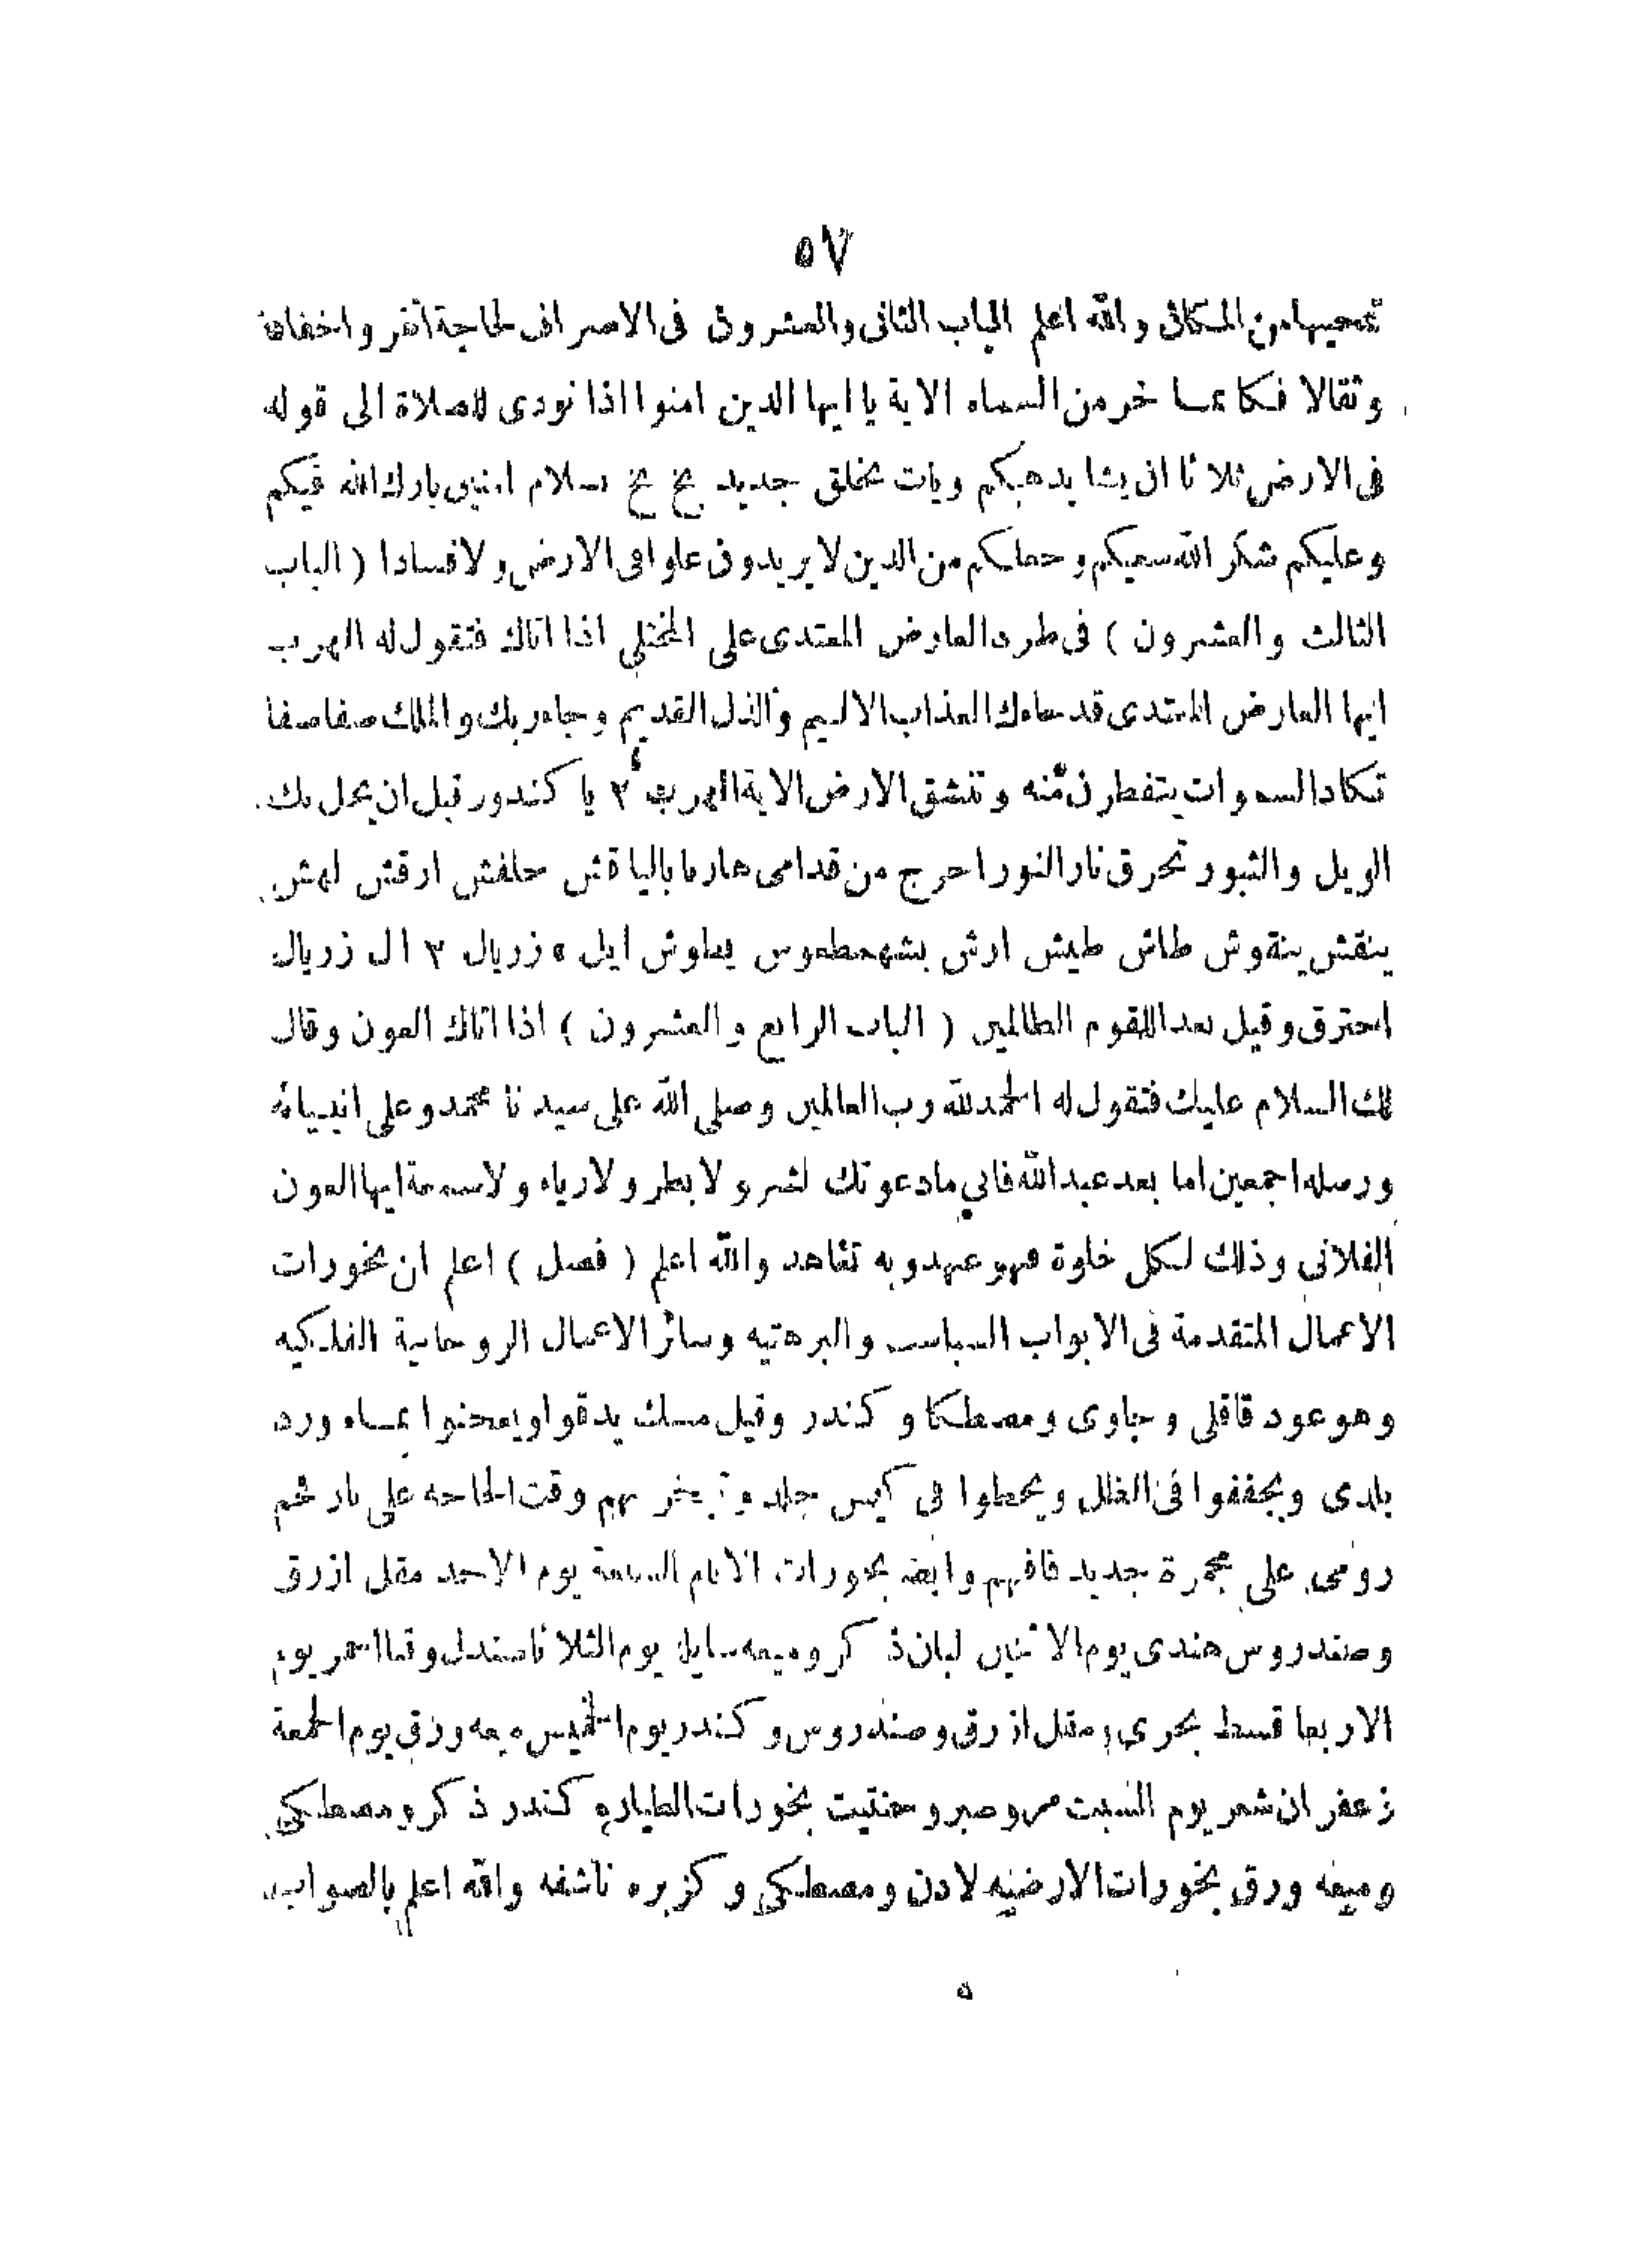 ٥٧
تمحيها من المكان والله اعلم الباب الثانى والعشرون فى الاصراف لحاجة انفروا خفافا
وثقالا فكانما خر من السماء الاية يا ايها الدين امنوا اذا نودى للصلاة الى قوله
فى الارض ثلاثا ان يشا يدهبكم ويات بخلق جديد بخ بخ بسلام امنين بارك الله فيكم
وعليكم شكر الله سعيكم وجعلكم من الدين لا يريدون علوا فى الارض ولا فسادا ( الباب
الثالث والعشرون ) فى طرد العارض المعتدى على المختلى اذا اتاك فتقول له الهرب
ايها العارض المعتدى قد جاءك العذاب الاليم والذل القديم وجاء ربك والملك صفا صفا
تكاد السموات يتفطرن منه وتنشق الارض الاية الهرب ٣ يا كندور قبل ان يحل بك
الويل والثبور تحرق نار النور احرج من قدامى هاربا بالياقش حلفش ارقش لهش
ينقش ينقوش طاش طيش ارش بشهمطموس يطوش ايل ه زريال ٣ ال زريال
احترق وقيل بعدا للقوم الظالمين ( الباب الرابع والعشرون ) اذا اتاك العون وقال
لك السلام عليك فتقول له الحمد لله رب العالمين وصلى الله على سيدنا محمد وعلى انبيائه
ورسله اجمعين اما بعد عبد الله فانى ما دعوتك لشر ولا بطر ولا رياء ولا سمعة ايها العون
الفلانى وذلك لكل خلوة فهو عهد وبه تعاهد والله اعلم ( فصل ) اعلم ان بخورات
الاعمال المتقدمة فى الابواب السباسب والبرهتيه وسائر الاعمال الروحانية الفلكيه
وهو عود قاقلى وجاوى ومصطكا وكندر وقيل مسك يدقوا ويعجنوا بماء ورد
بلدى ويجففوا فى الظلل ويحطوا فى كيس جلد وتبخر بهم وقت الحاجه على نار فحم
رومى على مجمرة جديد فافهم وايضه بخورات الايام السبعة يوم الاحد مقل ازرق
وصندروس هندى يوم الاثنين لبان ذكر وميعه سايله يوم الثلاثا صندل وقسا احمر يوم
الاربعا قسط بحرى ومقل ازرق وصندروس وكندر يوم الخميس ميعه ورق يوم الجمعة
زعفران شعر يوم السبت مر وصبر وحنتيت بخورات الطياره كندر ذكر ومصطكى
وميعه ورق بخورات الارضيه لادن ومصطكى وكزبره ناشفه والله اعلم بالصواب
٥